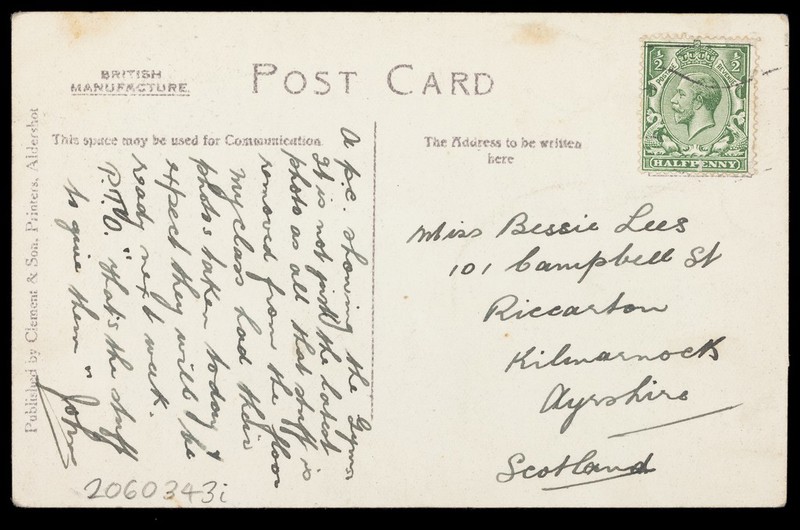 BRITISH
MANUFACTURE.
POST CARD
This space may be used for Communication
The Address to be written
here
1/2 1/2
POSTAGE REVENUE
HALFPENNY
A p.c. showing the Gym.
It is not just the latest
photo as all that stuff is
removed from the floor
My class had their
photos taken today &
expect they will be
ready next week.
P.T.O. "that's the stuff
to give them" John
Miss Bessie Lees
101 Campbell St
Riccarton
Kilmarnock
Ayrshire
Scotland
Published by Clement & Son, Printers, Aldershot
2060343i